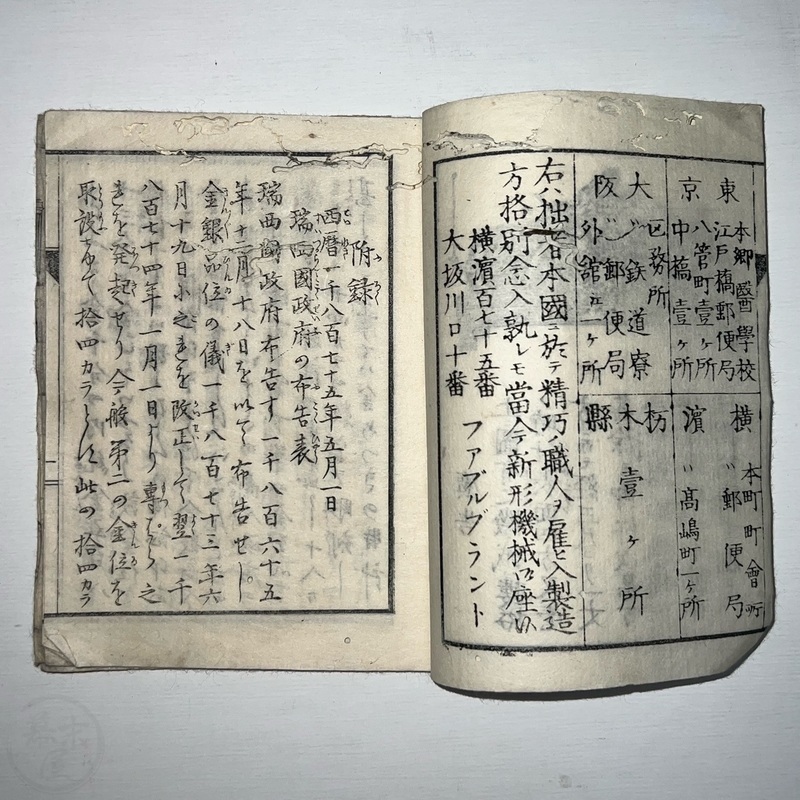 東京
本郷醫學校
江戸橋郵便局
八管町壹ヶ所
中橋壹ヶ所
横濱
本町町會所
〃郵便局
〃高嶋町一ヶ所
大阪
区務所
〃鉄道寮
〃郵便局
外舘ニ一ヶ所
栃木縣
壹ヶ所
右ハ拙者日本國ニ於テ精巧ノ職人ヲ雇ヒ入製造
方格別念入孰レモ當今テ新形機械ニ御座候
横濱百七十五番
大坂川口十番
ファブルブラント
附録
西暦一千八百七十五年五月一日
瑞西國政府の布告表
瑞西國政府布告す一千八百六十五
年十二月十八日を以て布告せし
金銀品位の儀一千八百七十三年六
月十九日小之きを改正して翌一千
八百七十四年一月一日より専ら之
きを発起せり今般第二の金位を
取設ケて拾四カラとす此の拾四カラ